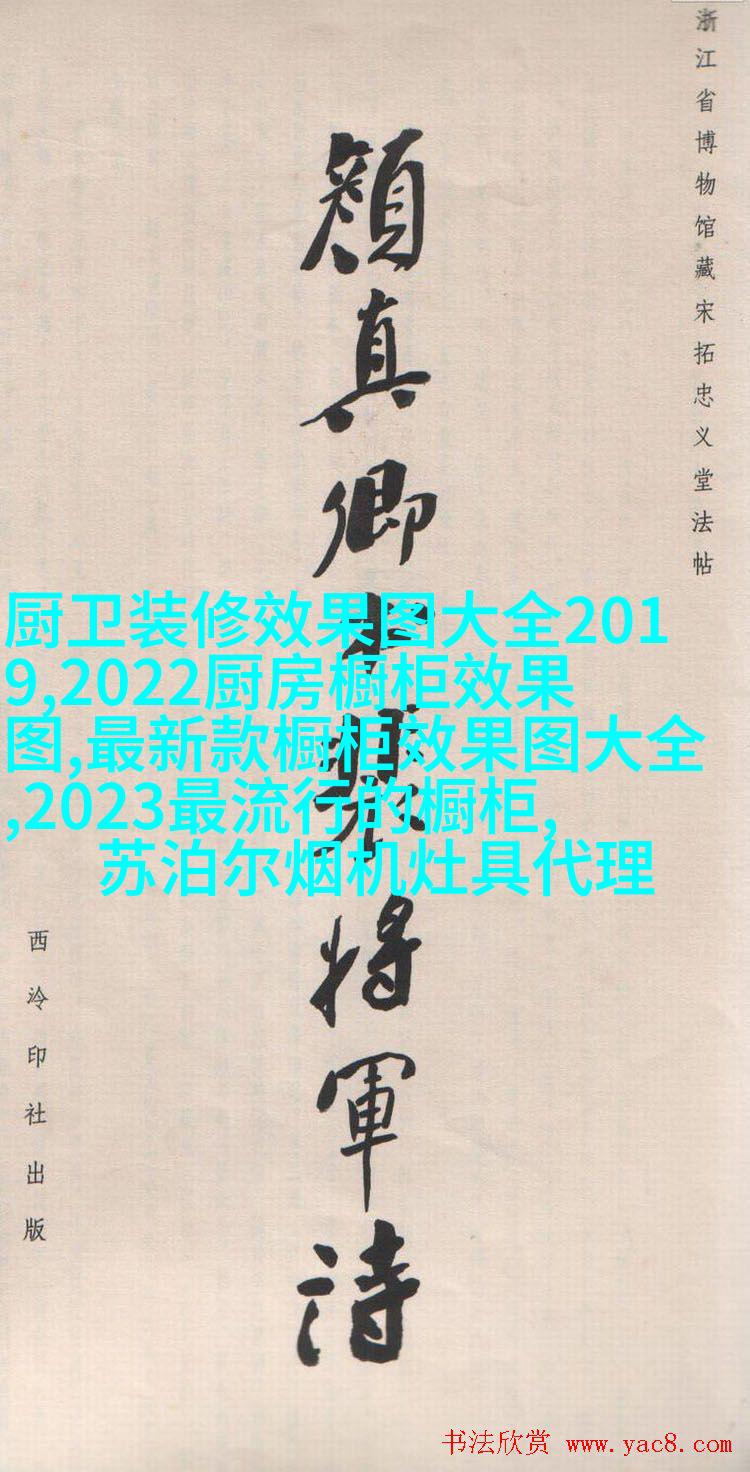 浙江省博物馆藏宋拓忠义堂法帖
顔真卿
将軍诗
西泠印社出版
厨卫装修效果图大全201
9,2022厨房橱柜效果
图,最新款橱柜效果图大全
,2023最流行的橱柜,
苏泊尔烟机灶具代理
书法欣赏 www.yac8.com